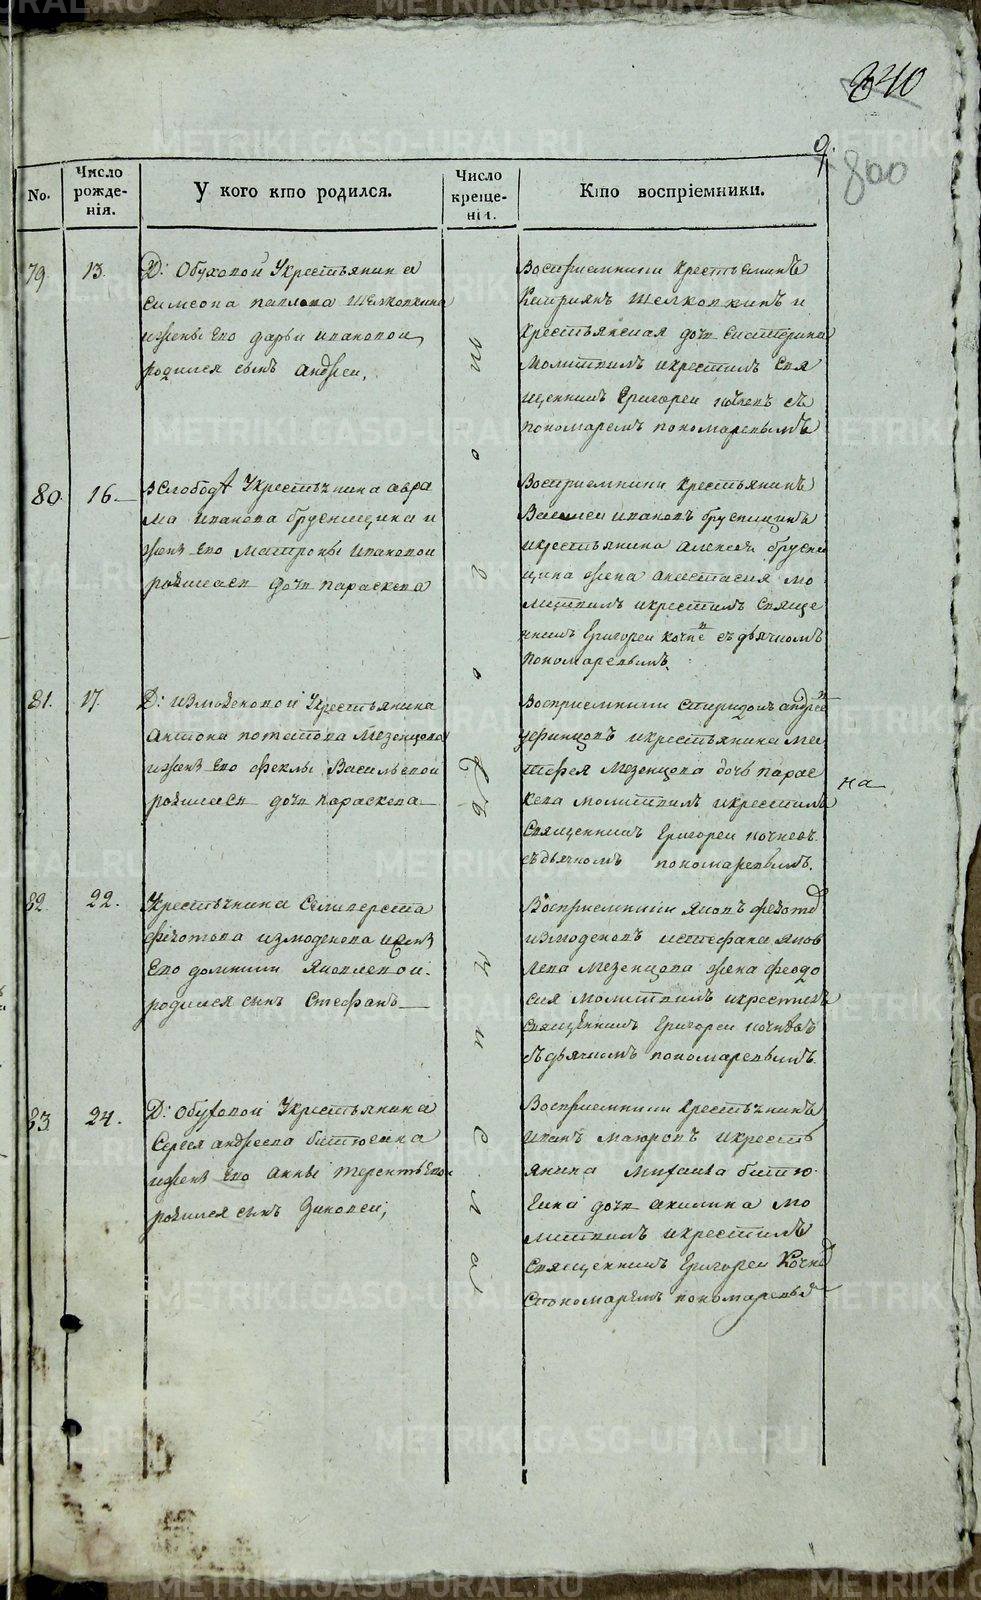 640
9.
800
No.
Число рожде-нія.
У кого кто родился.
Число креще-нія.
Кто воспріемники.
79.
13.
Д: Обуховой Укрестьянина
симеона павлова Шелковкина
ижены Его дарьи ивановой
родился сынъ Андреи,
Восприемники крестьянинъ
Киприянъ шелковкинъ и
крестьянская дочь екатерина
Молитвилъ икрестилъ Свя
щенникъ Григореи кочневъ съ
пономаремъ пономаревымъ
80.
16.
Вслободѣ Укрестьянина авра
ма иванова брусницина и
женѣ Его матроны ивановои
родилась дочь параскева
Восприемники крестьянинъ
Василеи ивановъ брусницинъ
икрестьянина алексея брусни
цина жена анастасия мо
литвилъ икрестилъ Свяще
нникъ Григореи кочне въ съдьячкомъ
пономаревымъ.
81.
17.
Д: измоденовой Укрестьянина
Антона потапова Мезенцова
иженѣ Его феклы Васильевои
родилась дочь параскева
Восприемники спиридонъ андрее
икрестьянина ма
твея Мезенцова дочь парас
кева молитвилъ икрестилъ
Священникъ Григореи кочневъ
съдьячкомъ пономаревымъ.
на
82
22.
Укрестьянина Селиверста
федотова измоденова иженѣ
Его домники Яковлевои.
родился сынъ Стефанъ
Восприемники Яковъ федотов
измоденовъ истефана яков
лева Мезенцова жена феодо
сия молитвилъ икрестилъ
священникъ Григореи кочневъ
съдьячкомъ пономаревымъ.
83
24.
Д: Обуховой Укрестьянина
Сергея андреева битюкина
иженѣ Его анны терентьевои
родился сынъ Зиновеи,
Восприемники крестьянинъ
иванъ маюровъ икресть
янина михаила битю
кина дочь акилина мо
литвилъ икрестилъ
священникъ Григореи Кочнев
Спономаремъ пономаревы
т
о
г
о
ж
ъ
ч
и
с
л
а
METRIKI.GASO-URAL.RU